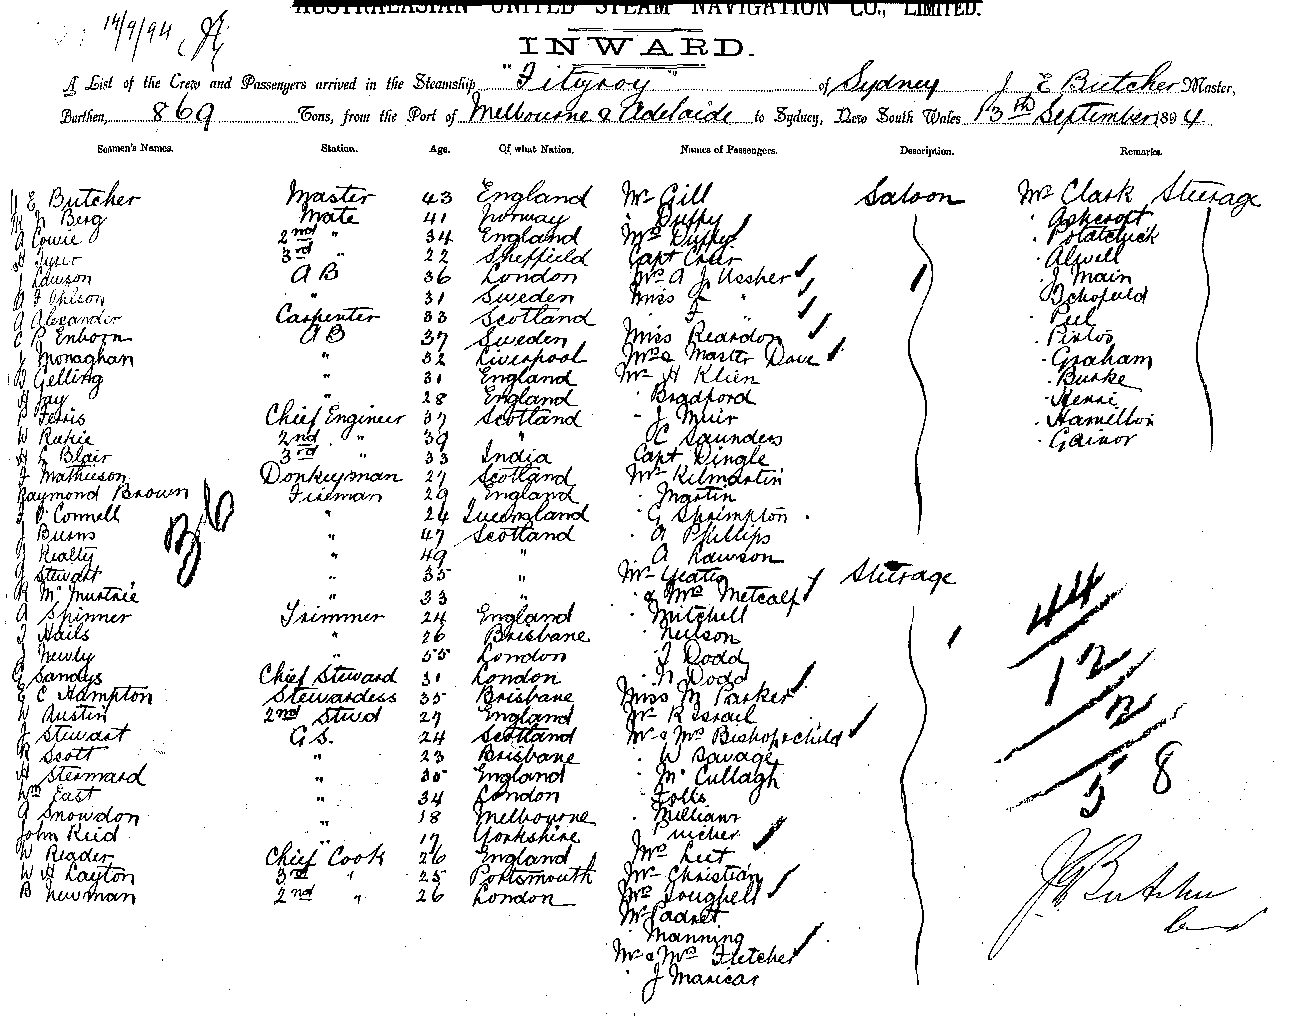 AUSTRALASIAN UNITED STEAM NAVIGATION CO., LIMITED.
14/9/94
INWARD.
A List of the Crew and Passengers arrived in the Steamship "Fitzroy" of Sydney J E Butcher Master,
Burthen, 869 Tons, from the Port of Melbourne & Adelaide to Sydney, New South Wales 13th September 1894
Seamen's Names. Station. Age. Of what Nation. Names of Passengers. Description. Remarks.
J E Butcher Master 43 England Mr Gill Saloon Mr Clark Steerage
Berg Mate 41 Norway " Duffy " Ashcroft
A Cowie 2nd " 34 England Mrs Duffy " Potatchick
3rd " 22 Sheffield Capt Creer " Alwell
J Lawson A B 36 London Mrs A J Ussher " J Main
Ohlson " 31 Sweden Miss " " Schofield
A Alexander Carpenter 33 Scotland " Peel
C P Enborn A B 37 Sweden Miss Reardon
J Monaghan " 32 Liverpool Mrs & Master Dave " Graham
Gelling " 31 England Mr H Klien " Burke
Jay " 28 England " Bradford " Henri
Ferris Chief Engineer 37 Scotland " J Muir " Hamilton
W Rukie 2nd " 39 " " C Saunders " Gainor
Blair 3rd " 33 India Capt Dingle
J Mathieson Donkeyman 27 Scotland Mr Kilmartin
Raymond Brown Fireman 29 England " Martin
O'Connell " 24 Queensland " G Shrimpton
J Burns " 47 Scotland " A Phillips
Realty " 49 " " A Rawson
J Stewart " 35 " Mr Yeates Steerage
R McMustrie " 33 " & Mrs Metcalf
A Spinner Trimmer 24 England " Mitchell
J Hails " 26 Brisbane " Neilson
J Newly " 55 London " J Dodd
G Sandys Chief Steward 31 London " Dodd
E C Hampton Stewardess 35 Brisbane Miss M Parker
W Austin 2nd Stewd 27 England Mr R Israil
J Stewart G.S. 24 Scotland Mr & Mrs Bishop & child
R Scott " 23 Brisbane " W Savage
H Stermard " 35 England " McCullagh
Wm East " 34 London " Folls
G Snowdon " 18 Melbourne " William
John Reid " 17 Yorkshire
W Reader Chief Cook 26 England Mrs Leet
W H Layton 3rd " 25 Portsmouth Mr Christian
B Newman 2nd " 26 London Mrs
Mr
" Manning
Mr & Mrs Fletcher
" J Manicar
36
44
12
2
58
J E Butcher